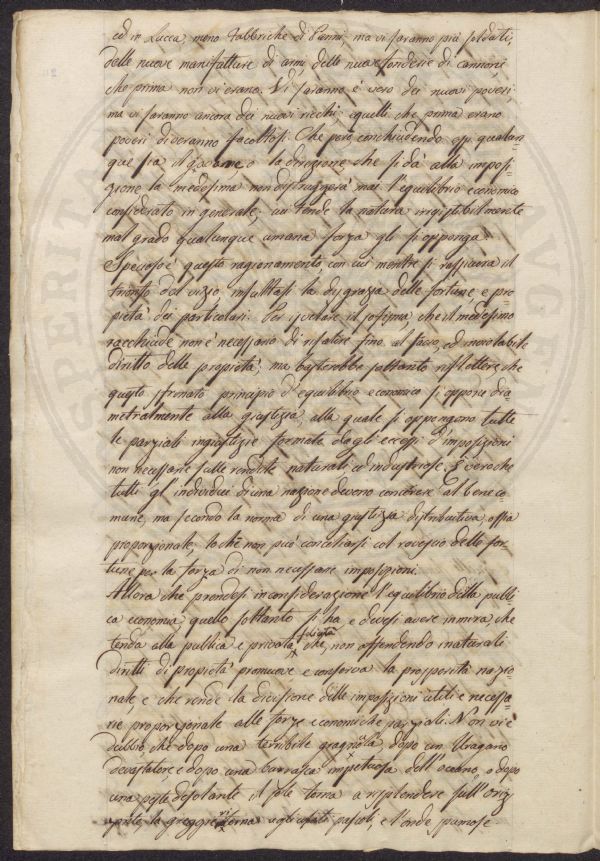 ed in Lucca meno fabbriche di Panni, ma vi saranno più soldati,
delle nuove manifatture di armi, delle nuove fonderie di cannoni,
che prima non vi erano. Vi saranno è vero dei nuovi poveri,
ma vi saranno ancora dei nuovi ricchi, e quelli che prima erano
poveri diveranno facoltosi. Che però conchiudendo qualun
que sia il governo o la direzione che si dà alla imposi
zione la medesima non distruggerà mai l'equilibrio economico
considerato in generale, cui tende la natura irresistibilmente
mal grado qualunque umana forza gli si opponga.
Specioso è questo ragionamento, con cui mentre si rassicura il
trionfo del vizio insultasi la disgrazia delle fortune e pro
pietà dei particolari. Per isvelare il sofisma, che il medesimo
racchiude non è necessario di risalire fino al sacro, ed inviolabile
diritto della propietà; ma basterebbe soltanto riflettere che
questo sfrenato principio d'equilibrio economico si oppone dia
metralmente alla giustizia, alla quale si oppongono tutte
le parziali ingiustizie formate dagli eccessi d'imposizioni
non necessarie sulle rendite naturali ed industriose. È vero che
tutti gl'individui di una nazione devono concorrere al bene co
mune, ma secondo la norma di una giustizia distributiva, ossia
proporzionale, lo che non può conciliarsi col rovescio delle for
tune per la forza di non necessarie imposizioni.
Allora che prendesi in considerazione l'equilibrio della pubbli
ca economia quello soltanto si ha, e devesi avere in mira che
tenda alla publica e privata felicità, che non offendendo i naturali
diritti di propietà promuove e conserva la prosperità nazio
nale, e che rende la divisione delle imposizioni utili e necessa
rie proporzionale alle forze economiche parziali. Non vi è
dubbio, che dopo una terribile gragnola, dopo un Uragano
devastatore e dopo una burrasca impetuosa dell'oceano, o dopo
una peste desolante il sole torna a risplendere sull'oriz
zonte, la greggie torna agli usati pascoli, e l'onde spumose